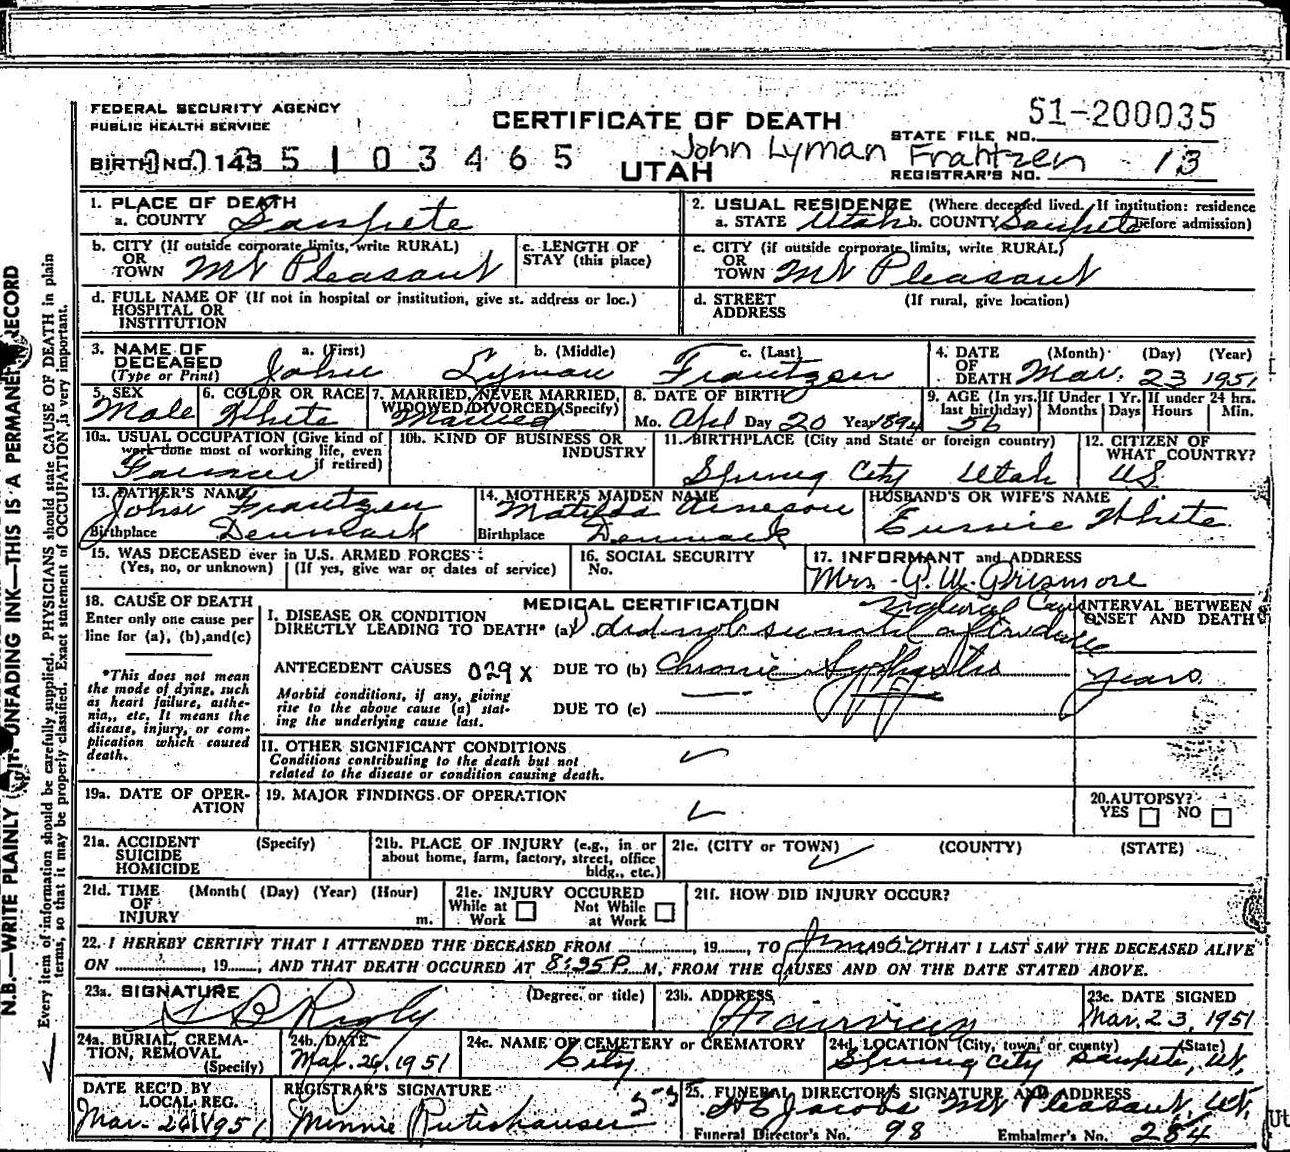 FEDERAL SECURITY AGENCY
PUBLIC HEALTH SERVICE
CERTIFICATE OF DEATH
51-200035
STATE FILE NO.
BIRTH NO. 143 5 1 0 3 4 6 5
UTAH
John Lyman Frantzen
REGISTRAR'S NO. 13
1. PLACE OF DEATH
a. COUNTY Sanpete
2. USUAL RESIDENCE (Where deceased lived. If institution: residence before admission)
a. STATE Utah b. COUNTY Sanpete
b. CITY (If outside corporate limits, write RURAL)
OR
TOWN Mt Pleasant
c. LENGTH OF
STAY (this place)
c. CITY (if outside corporate limits, write RURAL)
OR
TOWN Mt Pleasant
d. FULL NAME OF (If not in hospital or institution, give st. address or loc.)
HOSPITAL OR
INSTITUTION
d. STREET (If rural, give location)
ADDRESS
3. NAME OF DECEASED
(Type or Print)
a. (First) b. (Middle) c. (Last)
John Lyman Frantzen
4. DATE OF DEATH (Month) (Day) (Year)
Mar. 23 1951
5. SEX
Male
6. COLOR OR RACE
White
7. MARRIED, NEVER MARRIED,
WIDOWED, DIVORCED (Specify)
Married
8. DATE OF BIRTH
Mo. Apl Day 20 Year 1894
9. AGE (In yrs. last birthday) If Under 1 Yr. Months Days If under 24 hrs. Hours Min.
56
10a. USUAL OCCUPATION (Give kind of
work done most of working life, even
if retired)
Farmer
10b. KIND OF BUSINESS OR
INDUSTRY
11. BIRTHPLACE (City and State or foreign country)
Spring City Utah
12. CITIZEN OF
WHAT COUNTRY?
U.S.
13. FATHER'S NAME
John Frantzen
Birthplace Denmark
14. MOTHER'S MAIDEN NAME
Matilda
Birthplace Denmark
HUSBAND'S OR WIFE'S NAME
White
15. WAS DECEASED ever in U.S. ARMED FORCES
(Yes, no, or unknown) (If yes, give war or dates of service)
16. SOCIAL SECURITY
No.
17. INFORMANT and ADDRESS
Mrs. G. W. Prismore
18. CAUSE OF DEATH
Enter only one cause per
line for (a), (b), and (c)
*This does not mean
the mode of dying, such
as heart failure, asthe-
nia, etc. It means the
disease, injury, or com-
plication which caused
death.
MEDICAL CERTIFICATION
I. DISEASE OR CONDITION
DIRECTLY LEADING TO DEATH* (a) did not see until after death
INTERVAL BETWEEN
ONSET AND DEATH
ANTECEDENT CAUSES 029x DUE TO (b) Chronic
years
Morbid conditions, if any, giving
rise to the above cause (a) stat-
ing the underlying cause last.
DUE TO (c)
II. OTHER SIGNIFICANT CONDITIONS
Conditions contributing to the death but not
related to the disease or condition causing death.
19a. DATE OF OPER-
ATION
19. MAJOR FINDINGS OF OPERATION
20. AUTOPSY?
YES NO
21a. ACCIDENT (Specify)
SUICIDE
HOMICIDE
21b. PLACE OF INJURY (e.g., in or
about home, farm, factory, street, office
bldg., etc.)
21c. (CITY or TOWN) (COUNTY) (STATE)
21d. TIME (Month) (Day) (Year) (Hour)
OF
INJURY m.
21e. INJURY OCCURED
While at Work Not While at Work
21f. HOW DID INJURY OCCUR?
22. I HEREBY CERTIFY THAT I ATTENDED THE DECEASED FROM , 19 , TO 1950 THAT I LAST SAW THE DECEASED ALIVE
ON , 19 , AND THAT DEATH OCCURED AT 8:35 P. M, FROM THE CAUSES AND ON THE DATE STATED ABOVE.
23a. SIGNATURE (Degree or title)
Rigby
23b. ADDRESS
Fairview
23c. DATE SIGNED
Mar. 23, 1951
24a. BURIAL, CREMA-
TION, REMOVAL
(Specify)
24b. DATE
Mar. 26, 1951
24c. NAME OF CEMETERY or CREMATORY
City
24d. LOCATION (City, town, or county) (State)
Spring City Sanpete, Ut.
DATE REC'D BY
LOCAL REG.
Mar. 26 1951
REGISTRAR'S SIGNATURE
Minnie Rutishauser
25. FUNERAL DIRECTOR'S SIGNATURE AND ADDRESS
Jacobs Mt Pleasant, Ut.
Funeral Director's No. 98 Embalmer's No. 284
N.B.—WRITE PLAINLY WITH UNFADING INK—THIS IS A PERMANENT RECORD
Every item of information should be carefully supplied. PHYSICIANS should state CAUSE OF DEATH in plain
terms, so that it may be properly classified. Exact statement of OCCUPATION is very important.
Ut